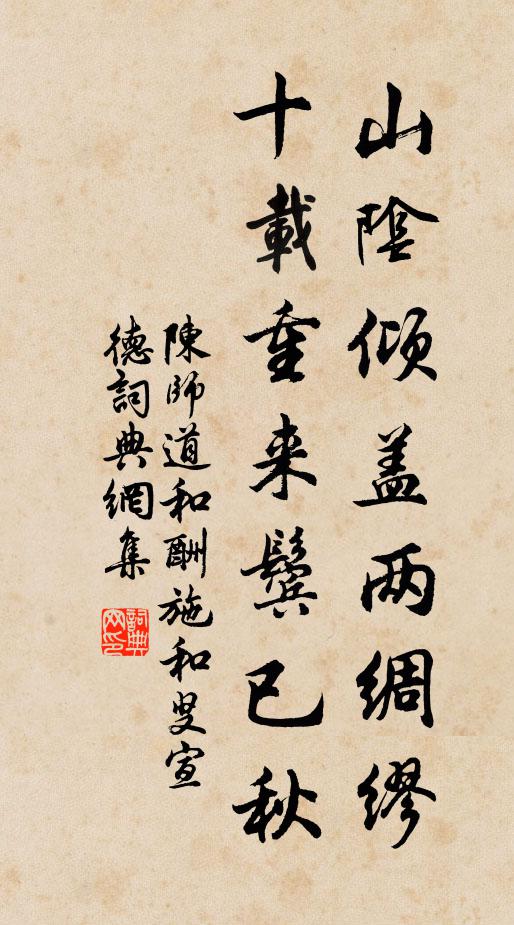 山陰傾盖两綢繆
十載重来鬢已秋
陳師道和酬施和叟宣
德詞典網集
詞典網印